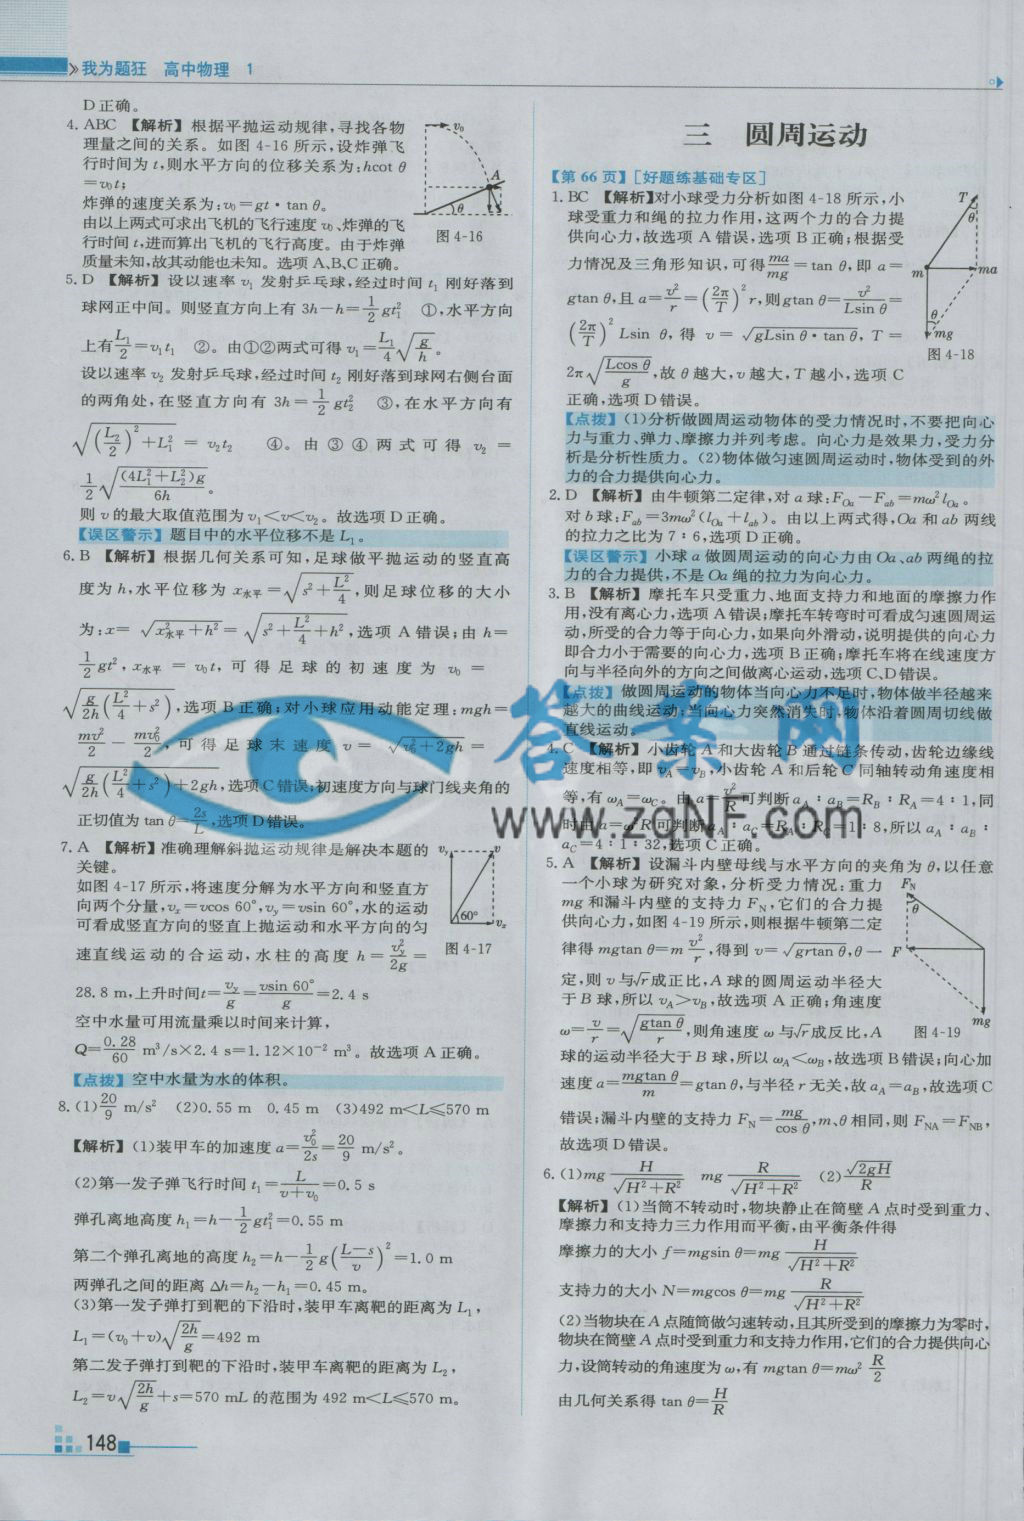 我为题狂 高中物理 1
D正确。
4. ABC 【解析】根据平抛运动规律,寻找各物
理量之间的关系。如图4-16所示,设炸弹飞
行时间为t,则水平方向的位移关系为:hcot θ
=v₀t;
炸弹的速度关系为:v₀=gt·tan θ。
由以上两式可求出飞机的飞行速度v₀、炸弹的飞
行时间t,进而算出飞机的飞行高度。由于炸弹
质量未知,故其动能也未知。选项A、B、C正确。
v₀
A
θ
图4-16
5. D 【解析】设以速率v₁发射乒乓球,经过时间t₁刚好落到
球网正中间。则竖直方向上有3h-h=1/2 gt₁² ①,水平方向
上有(L₁/2)=v₁t₁ ②。由①②两式可得v₁=(L₁/4)√(g/h)。
设以速率v₂发射乒乓球,经过时间t₂刚好落到球网右侧台面
的两角处,在竖直方向有3h=1/2 gt₂² ③,在水平方向有
√((L₂/2)²+L₁²)=v₂t₂ ④。由③④两式可得v₂=
1/2 √((4L₁²+L₂²)g/6h)。
则v的最大取值范围为v₁<v<v₂。故选项D正确。
【误区警示】题目中的水平位移不是L₁。
6. B 【解析】根据几何关系可知,足球做平抛运动的竖直高
度为h,水平位移为x水平=√(s²+L²/4),则足球位移的大小
为:x=√(x²水平+h²)=√(s²+L²/4+h²),选项A错误;由h=
1/2 gt²,x水平=v₀t,可得足球的初速度为v₀=
√(g/2h(L²/4+s²)),选项B正确;对小球应用动能定理:mgh=
mv²/2-mv₀²/2,可得足球末速度v=√(v₀²+2gh)=
√(g/2h(L²/4+s²)+2gh),选项C错误;初速度方向与球门线夹角的
正切值为tan θ=2s/L,选项D错误。
7. A 【解析】准确理解斜抛运动规律是解决本题的
关键。
如图4-17所示,将速度分解为水平方向和竖直方
向两个分量,vₓ=vcos 60°,v_y=vsin 60°,水的运动
可看成竖直方向的竖直上抛运动和水平方向的匀
速直线运动的合运动,水柱的高度h=v_y²/2g=
28.8 m,上升时间t=v_y/g=vsin 60°/g=2.4 s
v_y
v
60°
vₓ
图4-17
空中水量可用流量乘以时间来计算,
Q=0.28/60 m³/s×2.4 s=1.12×10⁻² m³。故选项A正确。
【点拨】空中水量为水的体积。
8. (1)20/9 m/s² (2)0.55 m 0.45 m (3)492 m<L≤570 m
【解析】(1)装甲车的加速度a=v₀²/2s=20/9 m/s²。
(2)第一发子弹飞行时间t₁=L/(v+v₀)=0.5 s
弹孔离地高度h₁=h-1/2 gt₁²=0.55 m
第二个弹孔离地的高度h₂=h-1/2 g((L-s)/v)²=1.0 m
两弹孔之间的距离Δh=h₂-h₁=0.45 m。
(3)第一发子弹打到靶的下沿时,装甲车离靶的距离为L₁,
L₁=(v₀+v)√(2h/g)=492 m
第二发子弹打到靶的下沿时,装甲车离靶的距离为L₂,
L₂=v√(2h/g)+s=570 mL的范围为492 m<L≤570 m。
148
三 圆周运动
【第66页】[好题练基础专区]
1. BC 【解析】对小球受力分析如图4-18所示,小
球受重力和绳的拉力作用,这两个力的合力提
供向心力,故选项A错误,选项B正确;根据受
力情况及三角形知识,可得ma/mg=tan θ,即a=
gtan θ,且a=v²/r=(2π/T)²r,则gtan θ=v²/(Lsin θ)=
(2π/T)²Lsin θ,得v=√(gLsin θ·tan θ),T=
2π√(Lcos θ/g),故θ越大,v越大,T越小,选项C
正确,选项D错误。
T
θ
m
ma
θ
mg
图4-18
【点拨】(1)分析做圆周运动物体的受力情况时,不要把向心
力与重力、弹力、摩擦力并列考虑。向心力是效果力,受力分
析是分析性质力。(2)物体做匀速圆周运动时,物体受到的外
力的合力提供向心力。
2. D 【解析】由牛顿第二定律,对a球:F_Oa-F_ab=mω²l_Oa。
对b球:F_ab=3mω²(l_Oa+l_ab)。由以上两式得,Oa和ab两线
的拉力之比为7∶6,选项D正确。
【误区警示】小球a做圆周运动的向心力由Oa、ab两绳的拉
力的合力提供,不是Oa绳的拉力为向心力。
3. B 【解析】摩托车只受重力、地面支持力和地面的摩擦力作
用,没有离心力,选项A错误;摩托车转弯时可看成匀速圆周运
动,所受的合力等于向心力,如果向外滑动,说明提供的向心力
即合力小于需要的向心力,选项B正确;摩托车将在线速度方
向与半径向外的方向之间做离心运动,选项C、D错误。
【点拨】做圆周运动的物体当向心力不足时,物体做半径越来
越大的曲线运动;当向心力突然消失时,物体沿着圆周切线做
直线运动。
4. C 【解析】小齿轮A和大齿轮B通过链条传动,齿轮边缘线
速度相等,即v_A=v_B,小齿轮A和后轮C同轴转动角速度相
等,有ω_A=ω_C。由a=v²/R可判断a_A∶a_B=R_B∶R_A=4∶1,同
时由a=ω²R可判断a_A∶a_C=R_A∶R_C=1∶8,所以a_A∶a_B∶
a_C=4∶1∶32,选项C正确。
5. A 【解析】设漏斗内壁母线与水平方向的夹角为θ,以任意
一个小球为研究对象,分析受力情况:重力
mg和漏斗内壁的支持力F_N,它们的合力提
供向心力,如图4-19所示,则根据牛顿第二定
律得mgtan θ=m v²/r,得到v=√(grtan θ),θ一
定,则v与√r成正比,A球的圆周运动半径大
于B球,所以v_A>v_B,故选项A正确;角速度
ω=v/r=√(gtan θ/r),则角速度ω与√r成反比,A
F_N
θ
F
mg
图4-19
球的运动半径大于B球,所以ω_A<ω_B,故选项B错误;向心加
速度a=mgtan θ/m=gtan θ,与半径r无关,故a_A=a_B,故选项C
错误;漏斗内壁的支持力F_N=mg/cos θ,m、θ相同,则F_NA=F_NB,
故选项D错误。
6. (1)mg H/√(H²+R²) mg R/√(H²+R²) (2)√(2gH)/R
【解析】(1)当筒不转动时,物块静止在筒壁A点时受到重力、
摩擦力和支持力三力作用而平衡,由平衡条件得
摩擦力的大小f=mgsin θ=mg H/√(H²+R²)
支持力的大小N=mgcos θ=mg R/√(H²+R²)
(2)当物块在A点随筒做匀速转动,且其所受到的摩擦力为零时,
物块在筒壁A点时受到重力和支持力作用,它们的合力提供向心
力,设筒转动的角速度为ω,有mgtan θ=mω² R/2
由几何关系得tan θ=H/R
答案网
www.zqNF.com